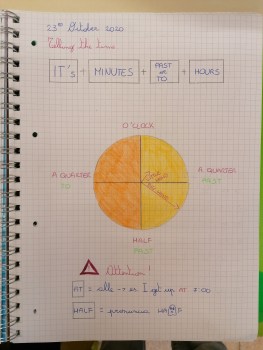 23rd October 2020
Telling the time
IT'S + MINUTES + PAST or TO + HOURS
O'CLOCK
A QUARTER TO
A QUARTER PAST
HALF PAST
Attention!
AT = alle → es I get up AT 8:00
HALF = pronuncia HAF